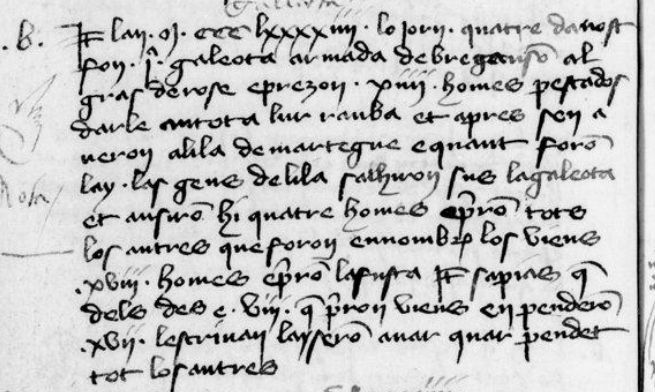 .b. It lan .m. ccc lxxxxiiii . lo jorn . quatre davost
fon .jª. galeota armada de bregansõ al
gras de rose e prezon . xviii . homes pescados
darle an tota lur rauba et apres sen a
neron a lila de martegue e quant forõ
lay . las gens de lila salhiron sus la galeota
et ausirõ hi quatre homes e p̃rõ tots
los autres que foron en nombre los viens
.xviii. homes e p̃rõ la fusta It sapias q̃
dels des e . viii . q̃ p̃ron viens en penderõ
.xvii. lescrivan laisserõ anar quar pendet
tot los autres
Nota